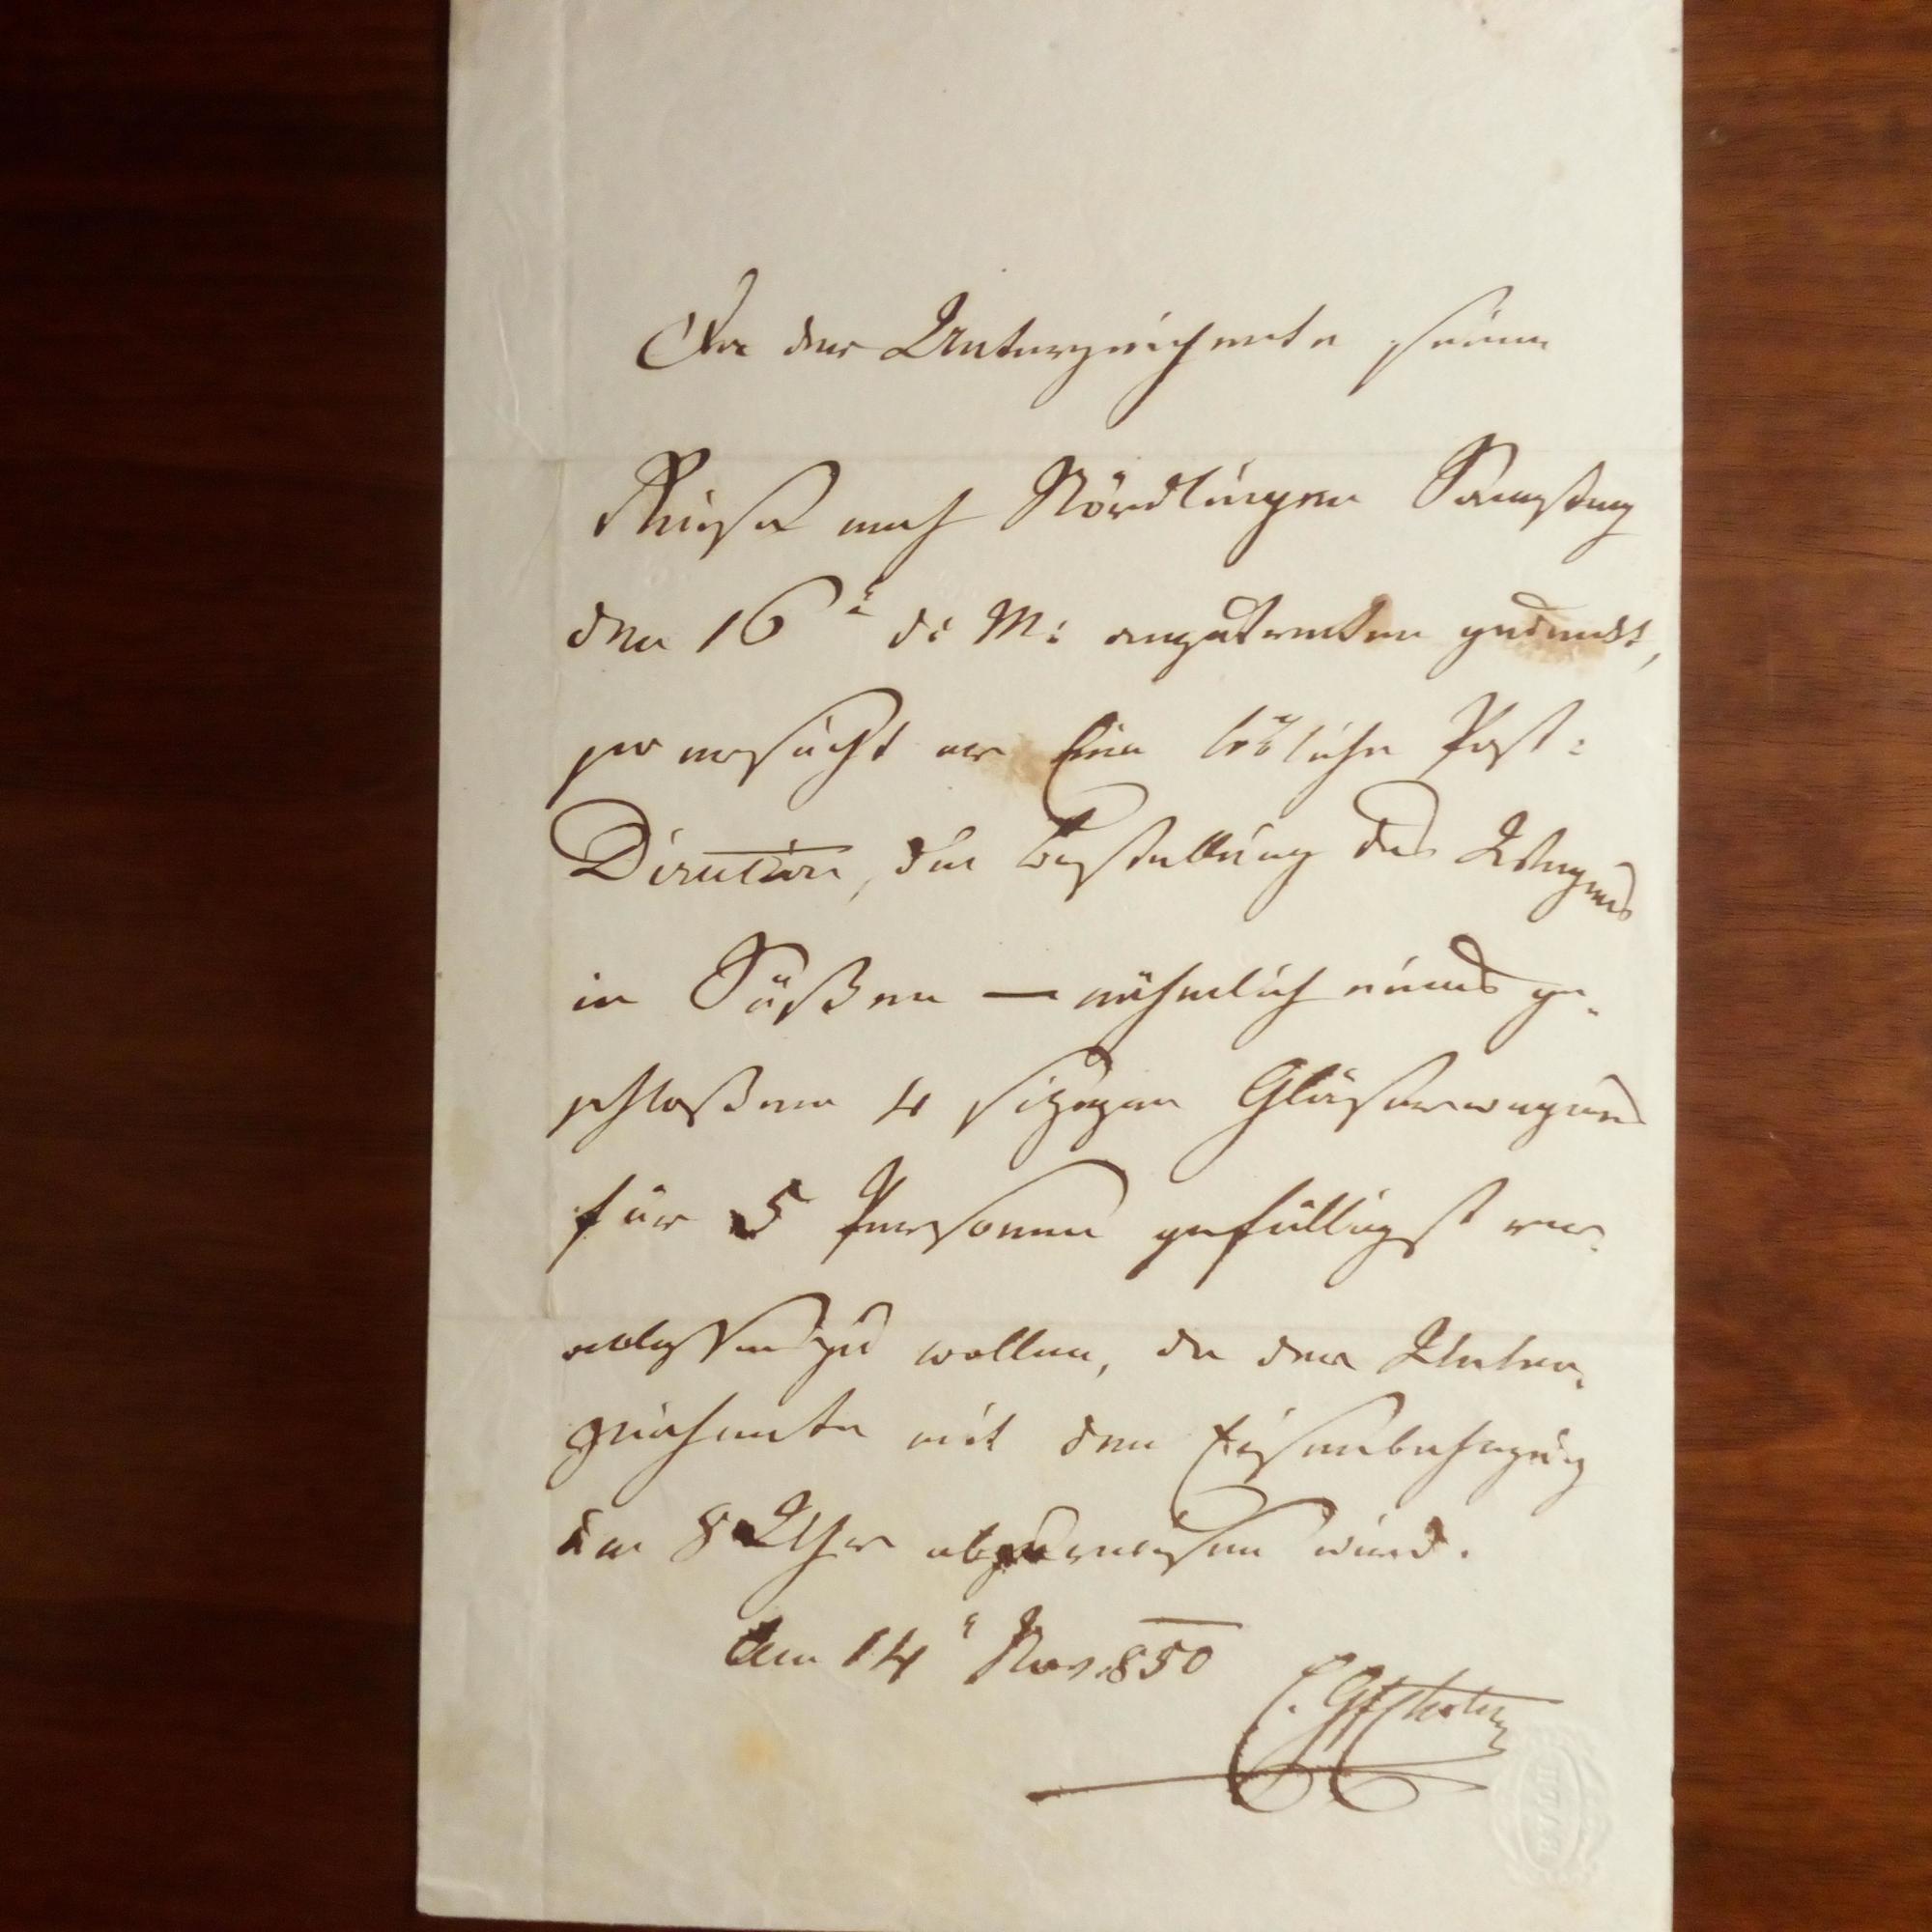 Da der Unterzeichnete seine
Reise nach Nördlingen Samstag
den 16t d: M: anzutreten gedenkt,
so ersucht er Eine löbliche Post-
Direction, die Bestellung des Wagens
in Süßen — nähmlich eines ge-
schloßenen 4 sizigen Gläserwagens
für 5 Personen gefälligst ver-
anlassen zu wollen, da der Unter-
zeichnete mit dem Eisenbahnzug
um 8 Uhr abreisen wird.
Am 14t Nov. 850
C.
BATH